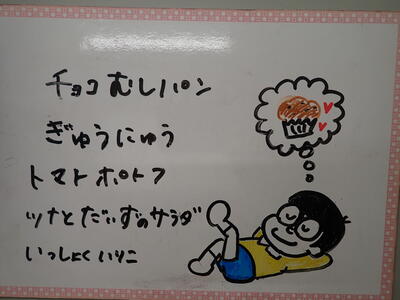 チョコむしパン
ぎゅうにゅう
トマトポトフ
ツナとだいずのサラダ
いっしょくいりこ